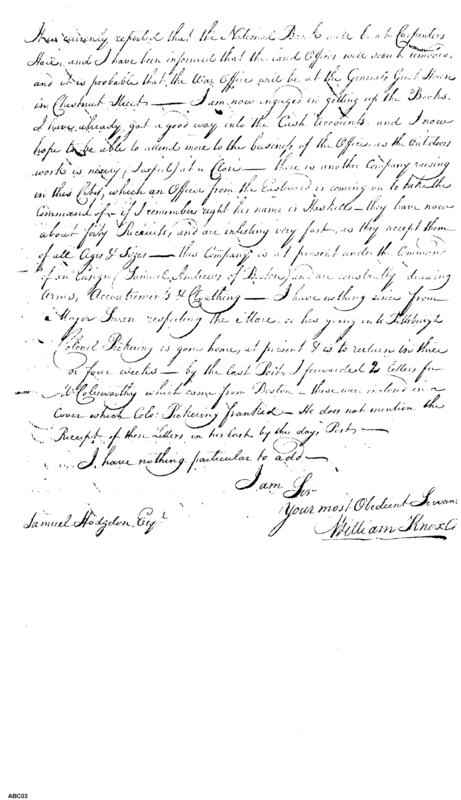 It is currently reported that the National Bank will be at Carpenters
Hall, and I have been informed that the Land Offices will soon be removed,
and it is probable that, the War Office will be at the Generals Great House
in Chesnut Street — I am now engaged in getting up the Books.
I have already got a good way into the Cash accounts, and I now
hope to be able to attend more to the business of the Office, as the out doors
work is nearly (I suppose) at a Close — there is another Company raising
in this City, which an Officer from the Eastward is coming on to take the
Command of & if I remember right his name is Haskell — they have now
about forty Recruits, and are inlisting very fast, as they accept them
of all Ages & Sizes — this Company is at present under the Command
of an Ensign (Samuel Andrews of Boston) and are constantly drawing
Arms, Accoutrements & Cloathing — I have nothing since from
Major Swan respecting the or his going into Pittsburgh
Colonel Pickering is gone home, at present & is to return in three
or four weeks — by the last Post, I forwarded 2 letters for
Mr Colesworthy which came from Boston — these were inclosed in a
Cover which Colo: Pickering franked — He does not mention the
Receipt of these Letters in his last, by this days Post —
I have nothing particular to add —
I am Sir
Your most Obedient Servant
William Knox
Samuel Hodgdon, Esqr
ABC03